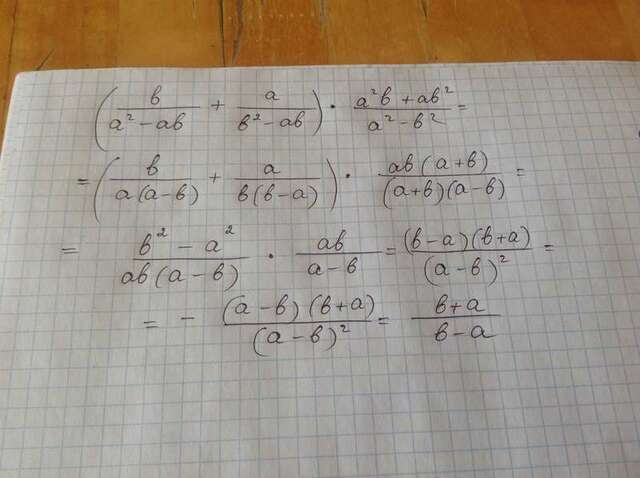 (b/(a² - ab) + a/(b² - ab)) · (a²b + ab²)/(a² - b²) =
= (b/(a(a-b)) + a/(b(b-a))) · (ab(a+b))/((a+b)(a-b)) =
= (b² - a²)/(ab(a-b)) · ab/(a-b) = ((b-a)(b+a))/((a-b)²) =
= - ((a-b)(b+a))/((a-b)²) = (b+a)/(b-a)